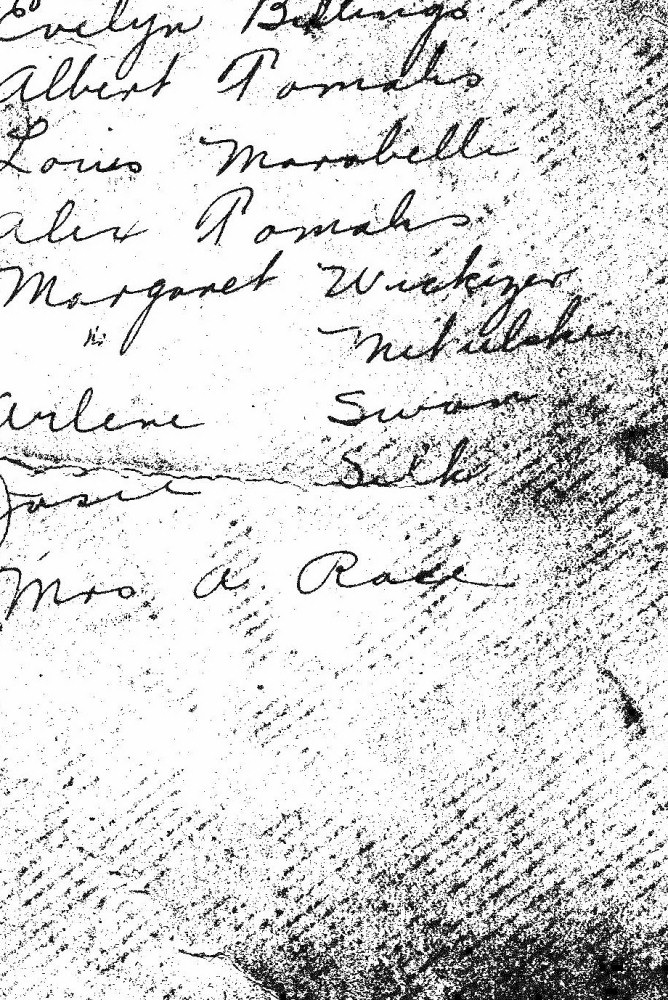 Evelyn Billings
Albert Tomalis
Louis Marabelle
Alex Tomalis
Margaret Wickizer
" Mikulski
Arlene Swan
Josie Silk
Mrs A. Race